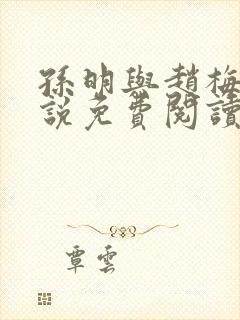 孫明與趙梅
說免費閱讀
覃雲